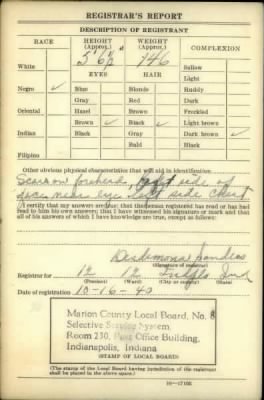 REGISTRAR'S REPORT
DESCRIPTION OF REGISTRANT
RACE HEIGHT (Approx.) WEIGHT (Approx.) COMPLEXION
5' 6½" 146
White Sallow
EYES HAIR Light
Negro ✓ Blue Blonde Ruddy
Gray Red Dark
Oriental Hazel Brown Freckled
Brown ✓ Black ✓ Light brown
Indian Black Gray Dark brown ✓
Bald Black
Filipino
Other obvious physical characteristics that will aid in identification
Scar on forehead, left side of
face near eye, left side chest
I certify that my answers are true; that the person registered has read or has had
read to him his own answers; that I have witnessed his signature or mark and that
all of his answers of which I have knowledge are true, except as follows:
(Signature of registrar)
Registrar for 12 12 Indpls Ind
(Precinct) (Ward) (City or county) (State)
Date of registration 10-16-40
Marion County Local Board, No. 8
Selective Service System,
Room 230, Post Office Building,
Indianapolis, Indiana
(STAMP OF LOCAL BOARD)
(The stamp of the Local Board having jurisdiction of the registrant
shall be placed in the above space.)